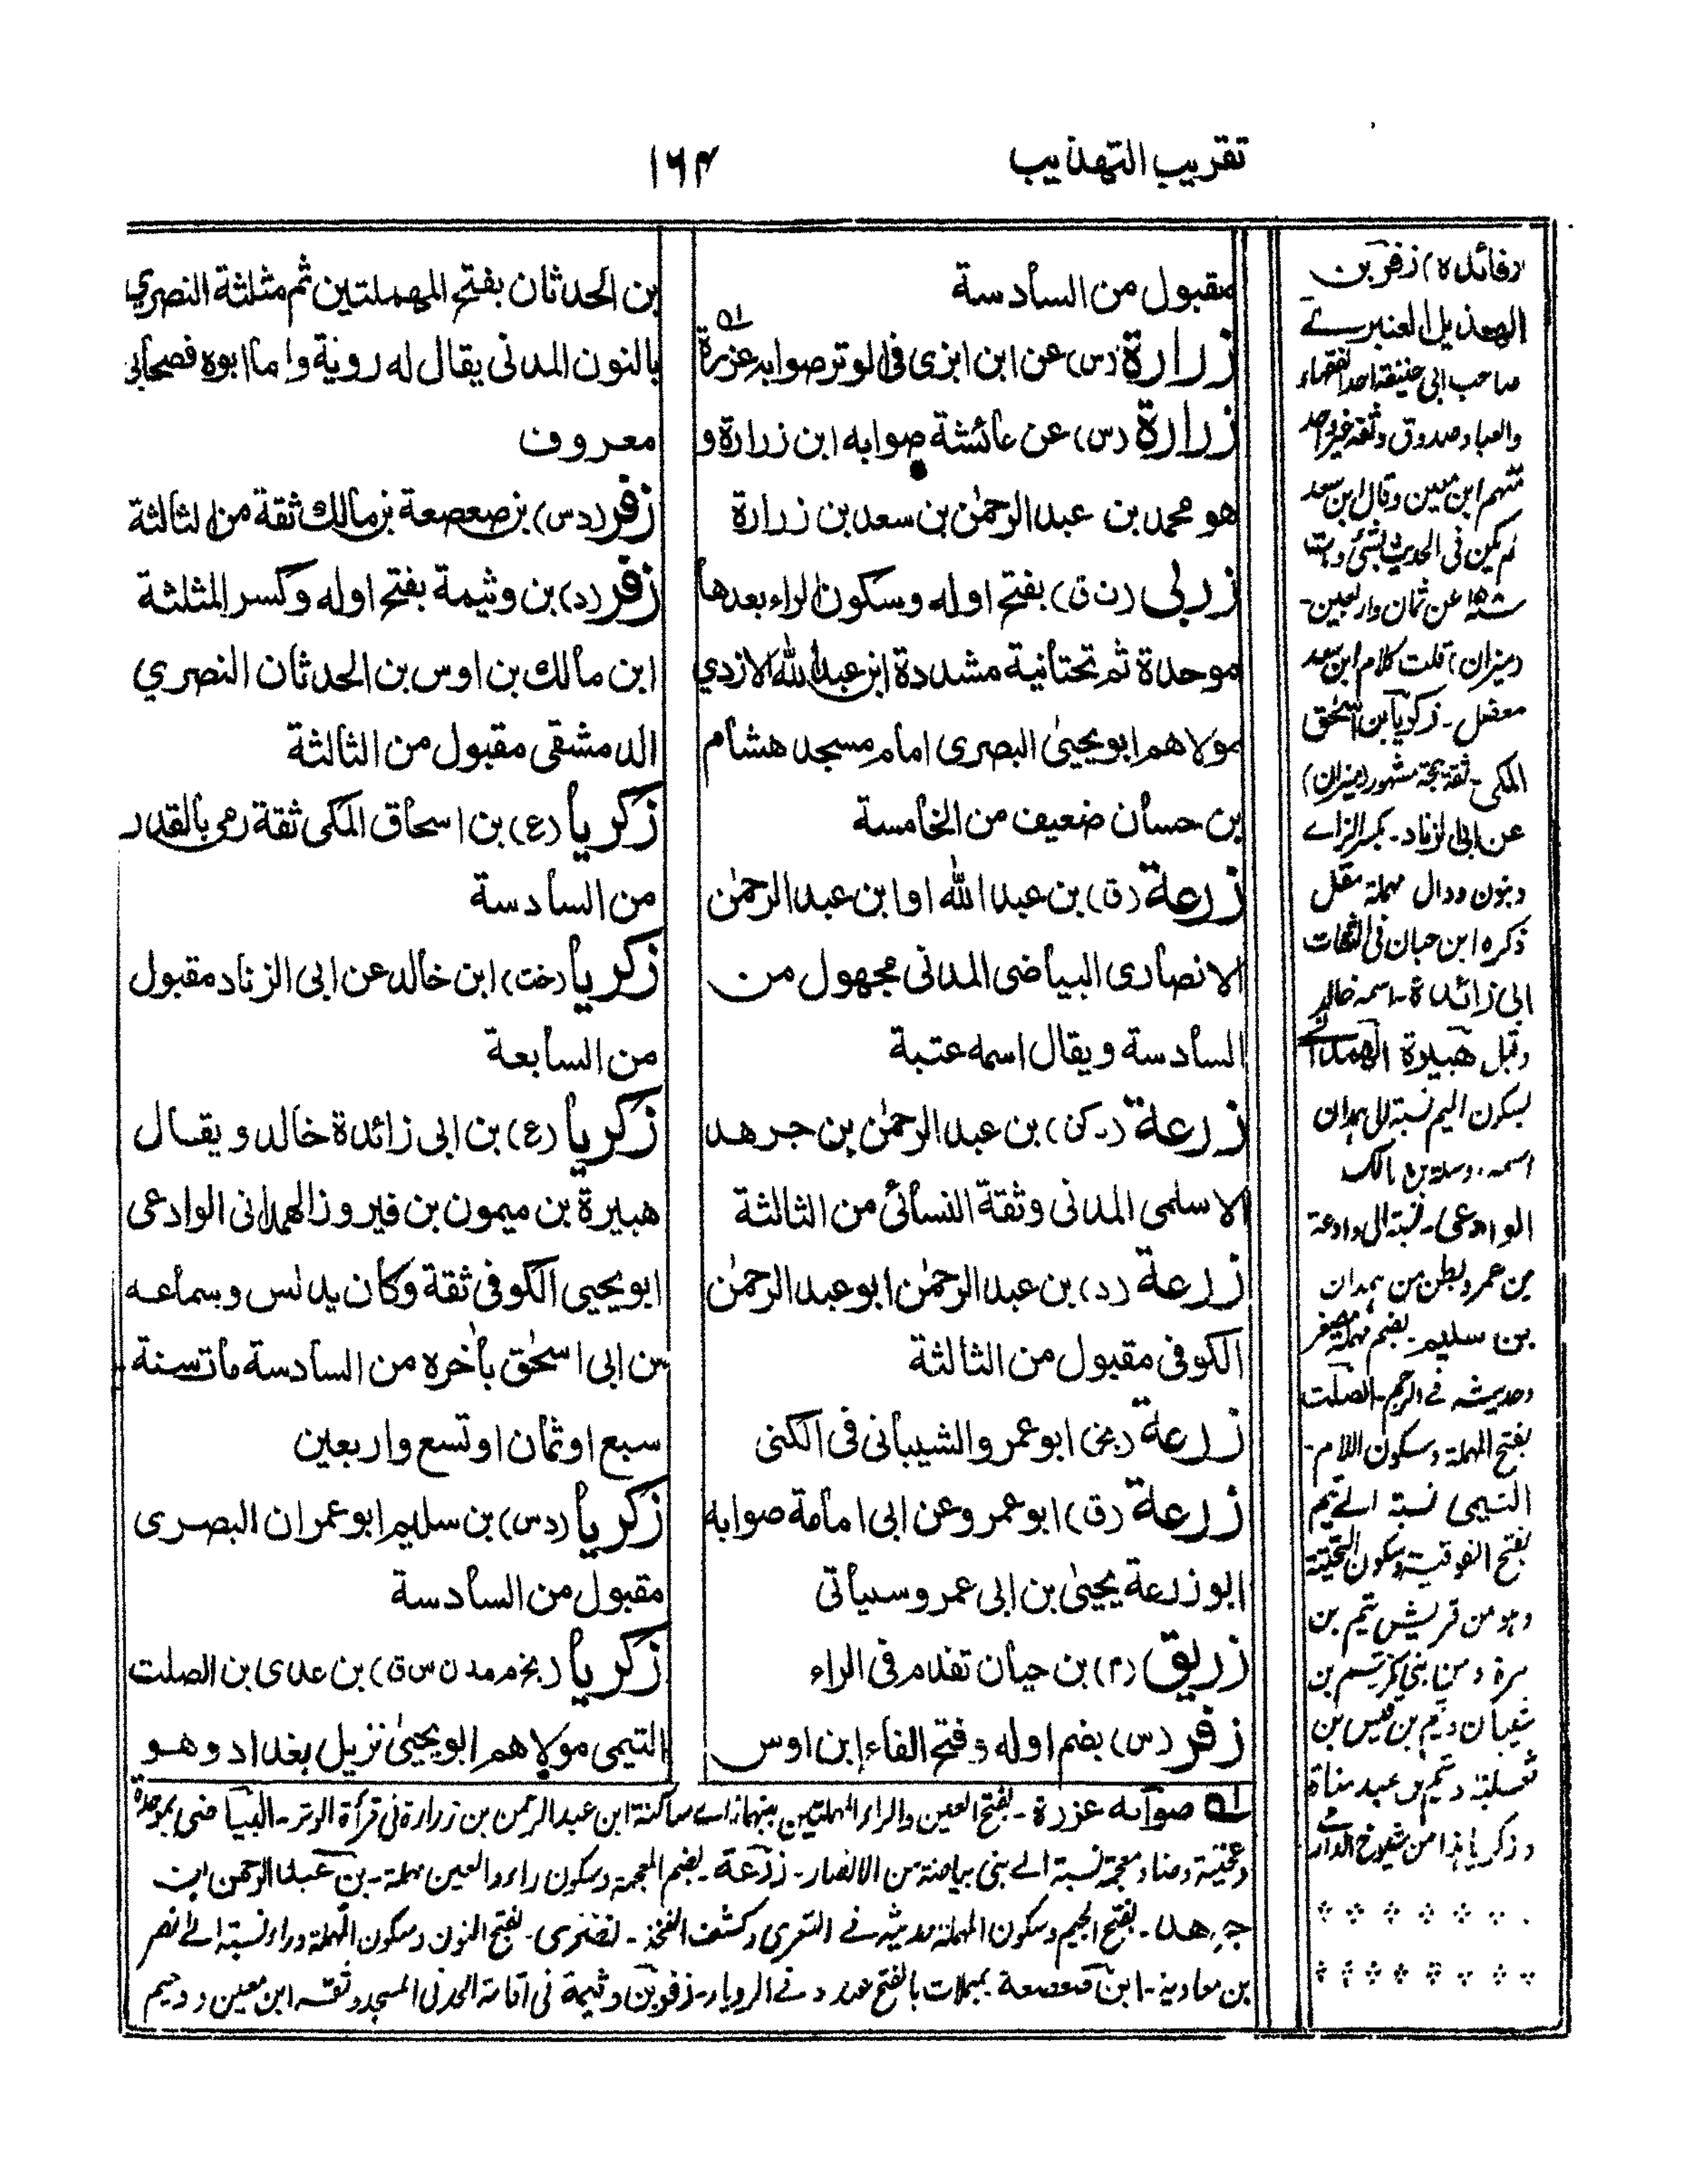 تقريب التهذيب
۱۶۴
مقبول من السادسة
زرارة (س) عن ابن ابزى فى الوتر صوابه عزرة
زرارة (س) عن عائشة صوابه ابن زرارة و
هو محمد بن عبد الرحمٰن بن سعد بن زرارة
زربى (ت ق) بفتح اوله وسكون الراء بعدها
موحدة ثم تحتانية مشددة ابن عبد الله الازدي
مولاهم ابو يحيىٰ البصرى امام مسجد هشام
بن حسان ضعيف من الخامسة
زرعة (ق) بن عبد الله او ابن عبد الرحمٰن
الانصارى البياضى المدنى مجهول من
السادسة ويقال اسمه عتبة
زرعة (د كن) بن عبد الرحمٰن بن جرهد
الاسلمى المدنى وثقة النسائى من الثالثة
زرعة (د) بن عبد الرحمٰن ابو عبد الرحمٰن
الكوفى مقبول من الثالثة
زرعة ابو عمرو الشيبانى فى الكنى
زرعة (ق) ابو عمرو عن ابى امامة صوابه
ابو زرعة يحيىٰ بن ابى عمرو وسياتى
زريق (م) بن حيان تقدم فى الراء
زفر (س) بضم اوله وفتح الفاء ابن اوس
بن الحدثان بفتح المهملتين ثم مثلثة النصري
بالنون المدنى يقال له روية واما ابوه فصحابى
معروف
زفر (دس) بن صعصعة بن مالك ثقة من الثالثة
زفر (د) بن وثيمة بفتح اوله وكسر المثلثة
ابن مالك بن اوس بن الحدثان النصري
الدمشقى مقبول من الثالثة
زكريا (ع) بن اسحاق المكى ثقة رمى بالقدر
من السادسة
زكريا (خت) ابن خالد عن ابى الزناد مقبول
من السابعة
زكريا (ع) بن ابى زائدة خالد ويقال
هبيرة بن ميمون بن فيروز الهمدانى الوادعى
ابو يحيى الكوفى ثقة وكان يدلس وسماعه
من ابى اسحٰق بأخره من السادسة مات سنة
سبع او ثمان او تسع واربعين
زكريا (دس) بن سليم ابو عمران البصرى
مقبول من السادسة
زكريا (بخ م مد ت س ق) بن عدى بن الصلت
التيمى مولاهم ابو يحيىٰ نزيل بغداد وهو
(فائدہ) زفر بن
الهذيل العنبرے
صاحب ابى حنيفة احد الفقهاء
والعباد صدوق وثقه غير واحد
منهم ابن معين وقال ابن سعد
لم يكن فى الحديث بشئ ومات
سنة ۱۵۸ عن ثمان واربعين۔
(ميزان) قلت كلام ابن سعد
معضل۔ زكريا بن اسحٰق
المكى۔ ثقة حجة مشهور (ميزان)
عن ابى الزناد۔ بكسر الزاے
ونون ودال مهملة مقل
ذكره ابن حبان فى الثقات
ابى زائدة۔ اسمه خالد
وقيل هبيرة الهمدانے
بسكون الميم نسبة الى همدان
اسمه اوسلة بن مالك
الوادعى۔ نسبة الى وادعة
من عمرو بطن من همدان
بن سليم۔ بضم مهملة مصغر
وحديثه فے الرجم۔ الصلت
بفتح المهملة وسكون اللام۔
التيمى نسبة الے تيم
بفتح الفوقية وسكون التحتية
وهو من قريش تيم بن
مرة ومن بنى بكر تيم بن
شيبان وتيم بن قيس بن
ثعلبة وتيم بن عبد مناة
وزكريا هذا من شيوخ
لہ صوابه عزرة۔ بفتح العين والراء المهملتين بينهما زاے ساكنة ابن عبد الرحمن بن زرارة فى قرأة الوتر۔ البياضى بموحدة
وتحتية وضاد معجمة نسبة الے بنى بياضة من الانصار۔ زرعة۔ بضم المعجمة وسكون راء والعين مهملة۔ بن عبد الرحمن ابن
جرهد۔ بفتح الجيم وسكون المهملة حديثه فے التعرى وكشف الفخذ۔ النصرى۔ بفتح النون وسكون المهملة وراء نسبة الے نصر
بن معاوية۔ ابن صعصعة بمهملات بالفتح فے الرويا۔ زفر بن وثيمة فى اقامة الحد فى المسجد وثقه ابن معين ودحيم